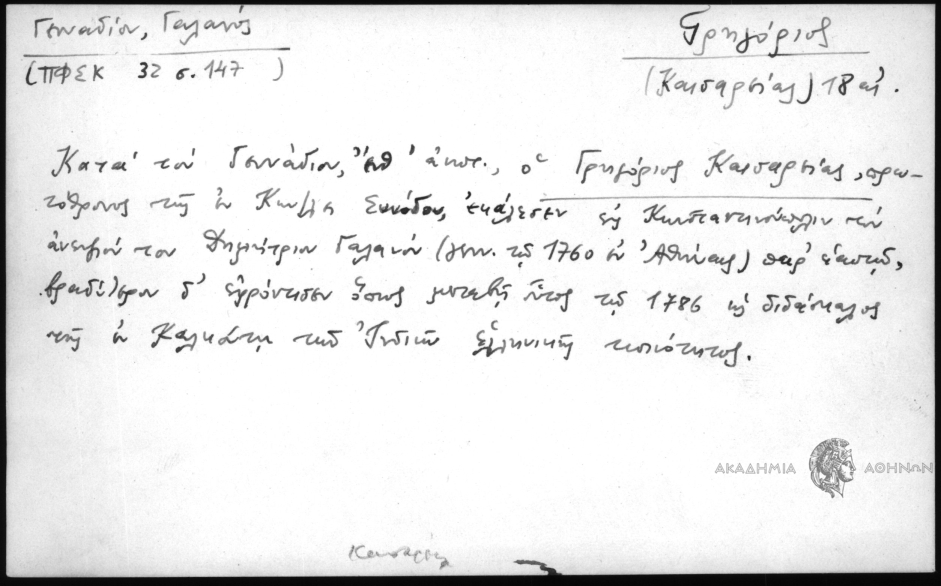 Γενναδίου, Γαλανός
(ΠΦΣΚ 32 σ. 147 )
Γρηγόριος
(Καισαρείας) 18 αἰ.
Κατὰ τὸν Γεννάδιον, ἔνθ' ἀνωτ., ὁ Γρηγόριος Καισαρείας, πρω-
τόθρονος τῆς ἐν Κων/λει Συνόδου, ἐκάλεσεν εἰς Κωνσταντινούπολιν τὸν
ἀνεψιόν του Δημήτριον Γαλανὸν (γενν. τῷ 1760 ἐν Ἀθήναις) παρ' ἑαυτῷ,
βραδύτερον δ' ἐφρόντισεν ὅπως μεταβῇ οὗτος τῷ 1786 ὡς διδάσκαλος
τῆς ἐν Καλκούτῃ τῶν Ἰνδιῶν ἑλληνικῆς κοινότητος.
ΑΚΑΔΗΜΙΑ ΑΘΗΝΩΝ
Καισαρείας